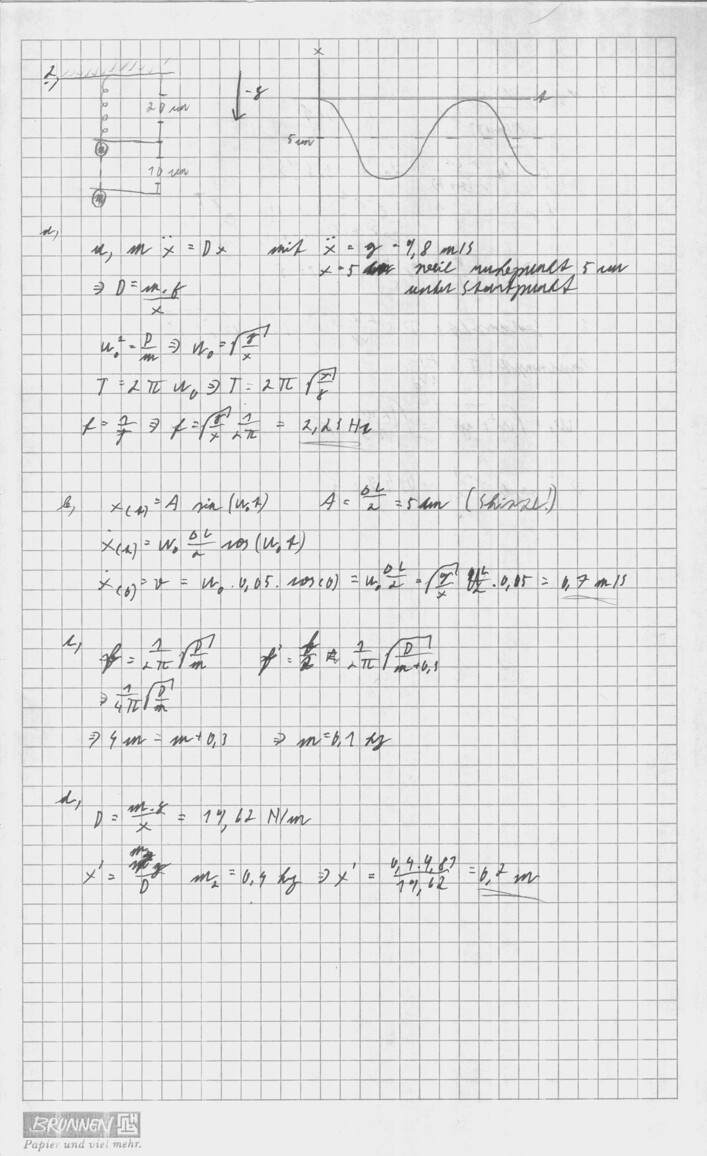 2.,
x
t
20 cm
-g
5 cm
10 cm
a, m ẍ = D x mit ẍ = g = 9,8 m/s
x = 5 cm weil ruhepunkt 5 cm
unter Startpunkt
⇒ D = m·g/x
ω₀² = D/m ⇒ ω₀ = √(g/x)
T = 2π ω₀ ⇒ T = 2π √(x/g)
f = 1/T ⇒ f = √(g/x) 1/2π = 2,23 Hz
b, x(t) = A sin(ω₀ t) A = ΔL/2 = 5 cm (Skizze!)
ẋ(t) = ω₀ ΔL/2 cos(ω₀ t)
ẋ(0) = v = ω₀ · 0,05 · cos(0) = ω₀ ΔL/2 = √(g/x) · 0,05 = 0,7 m/s
c, f = 1/2π √(D/m) f' = f/2 = 1/2π √(D/(m+0,3))
⇒ 1/4π √(D/m)
⇒ 4m = m+0,3 ⇒ m = 0,1 kg
d,
D = m·g/x = 19,62 N/m
x' = m₂g/D m₂ = 0,4 kg ⇒ x' = 0,4·9,81/19,62 = 0,2 m
BRUNNEN
Papier und viel mehr.